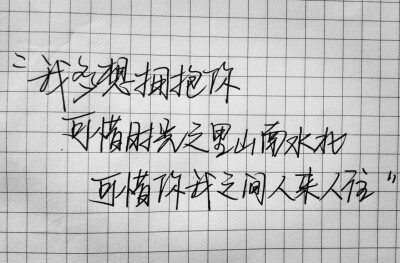 "我多想拥抱你
可惜时光之里山南水北
可惜你我之间人来人往"